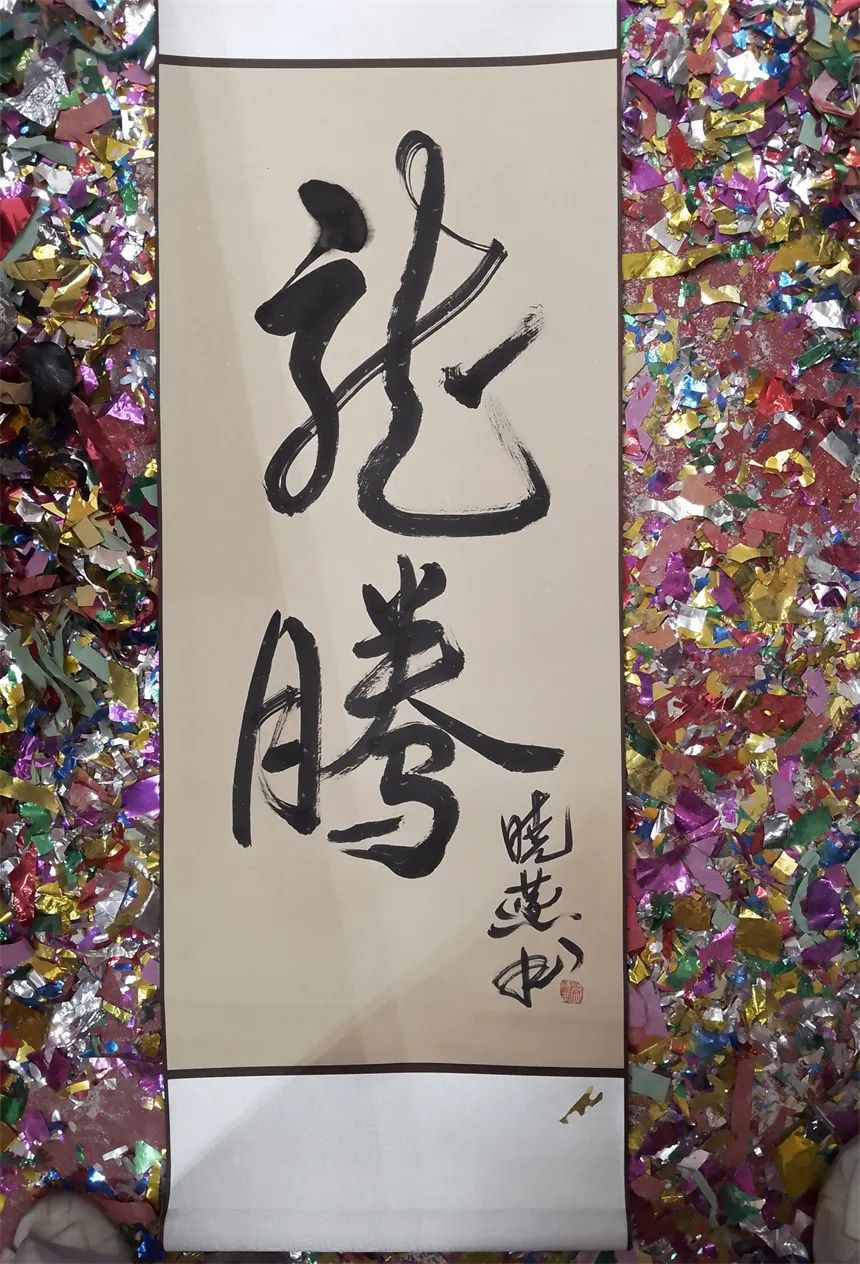 龍騰
曉燕书